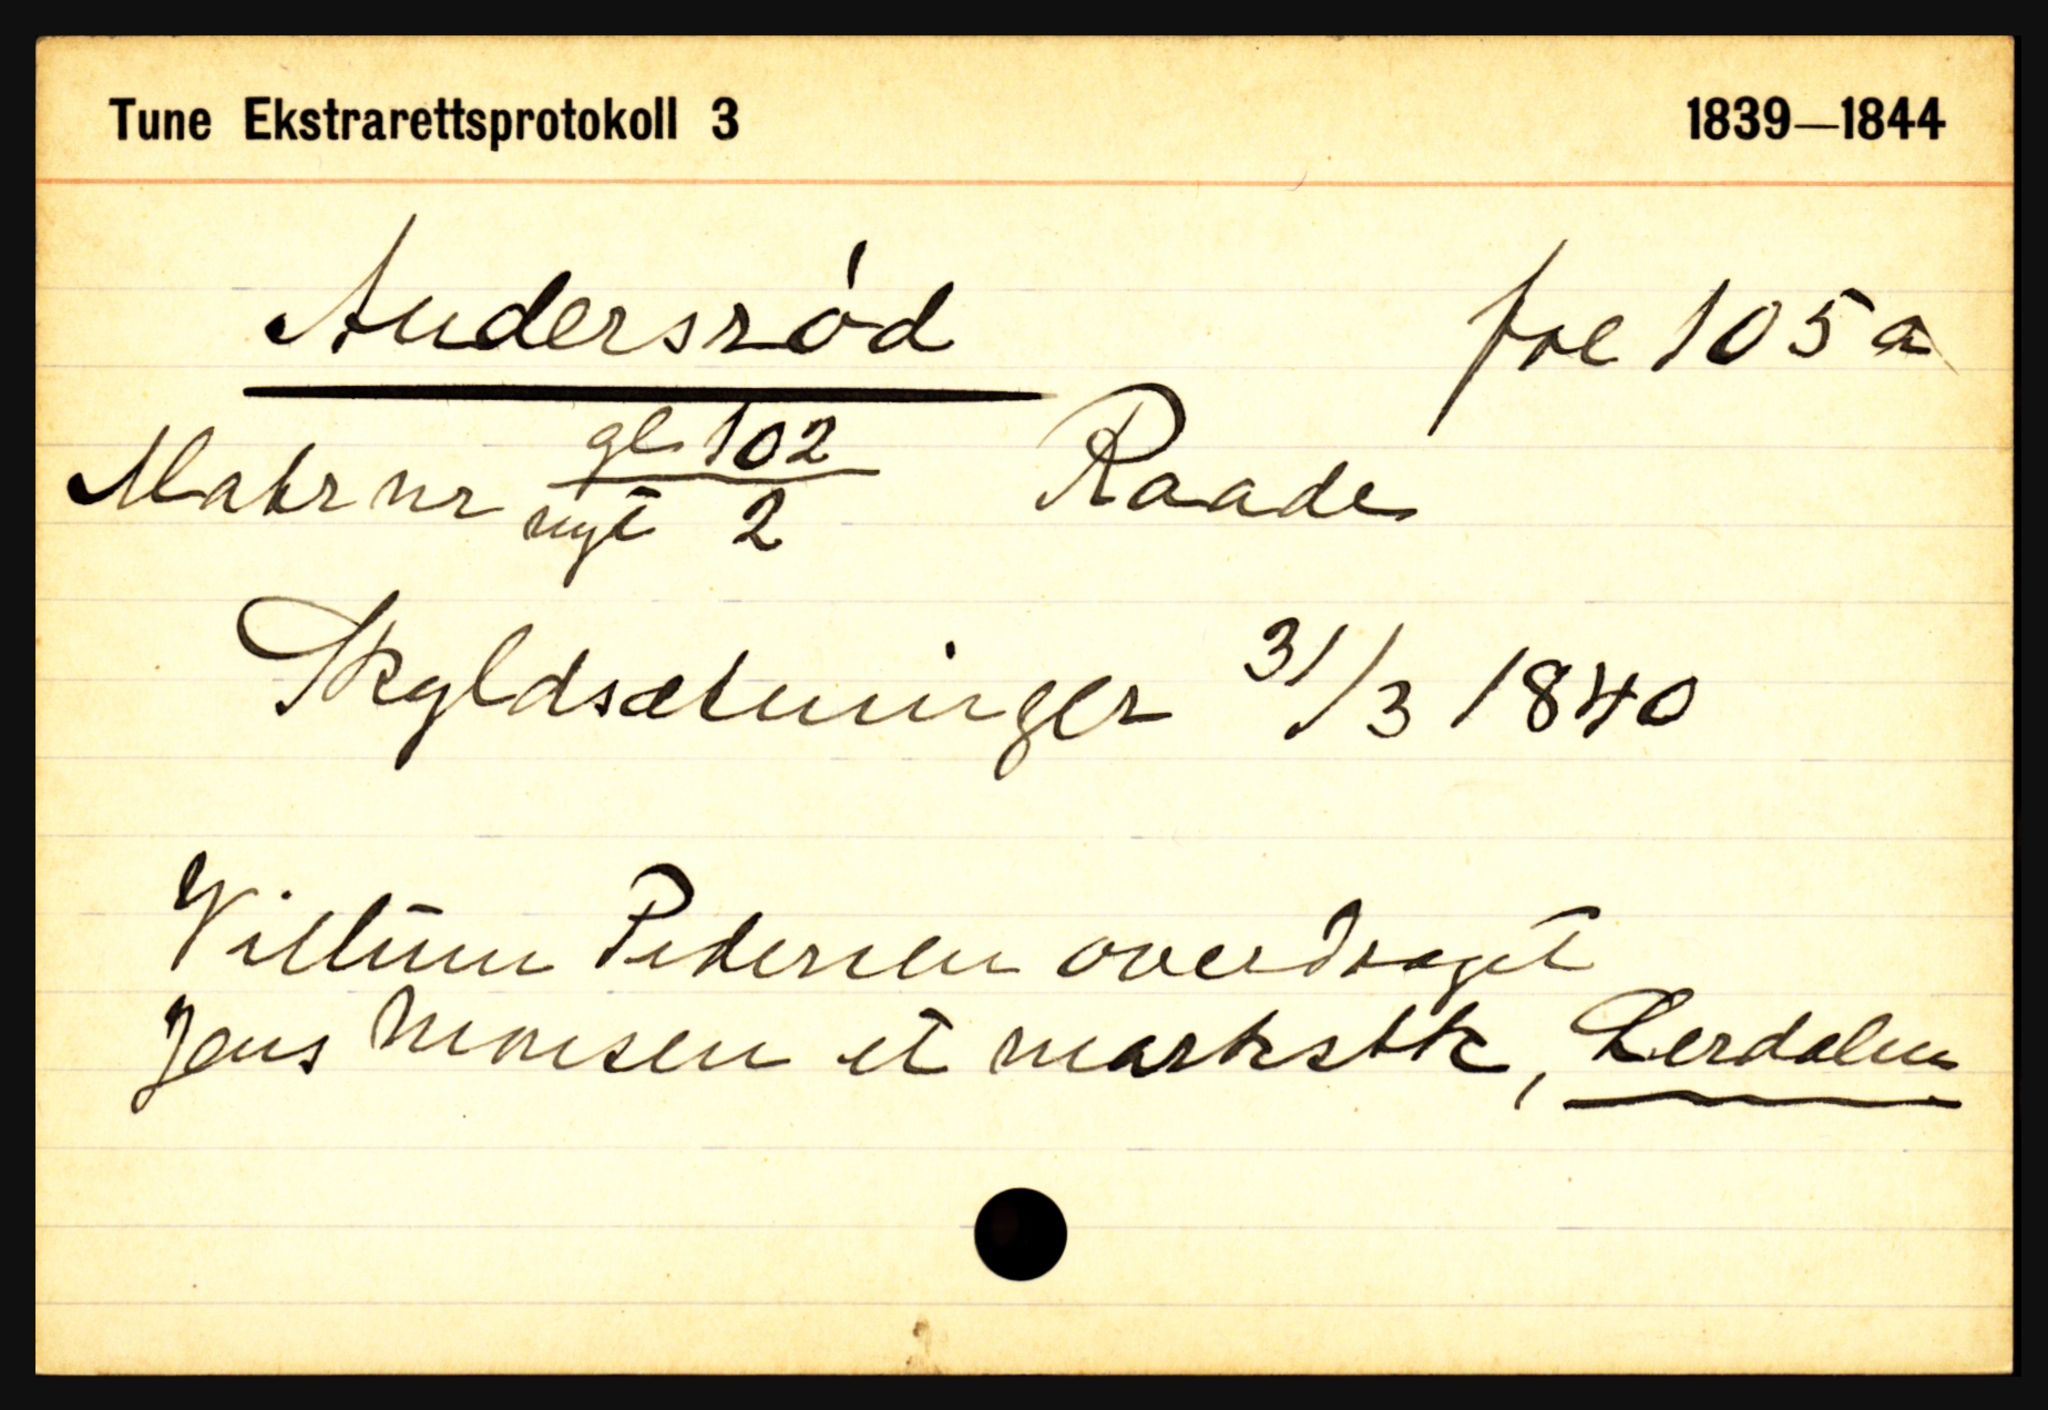 Tune Ekstrarettsprotokoll 3 1839—1844
Andersrød fol 105 a
Matr nr gl 102 Raade
nyt 2
Skyldsætninger 31/3 1840
Villum Pedersen overdraget
Jens Monsen et markstk, Lerdalen